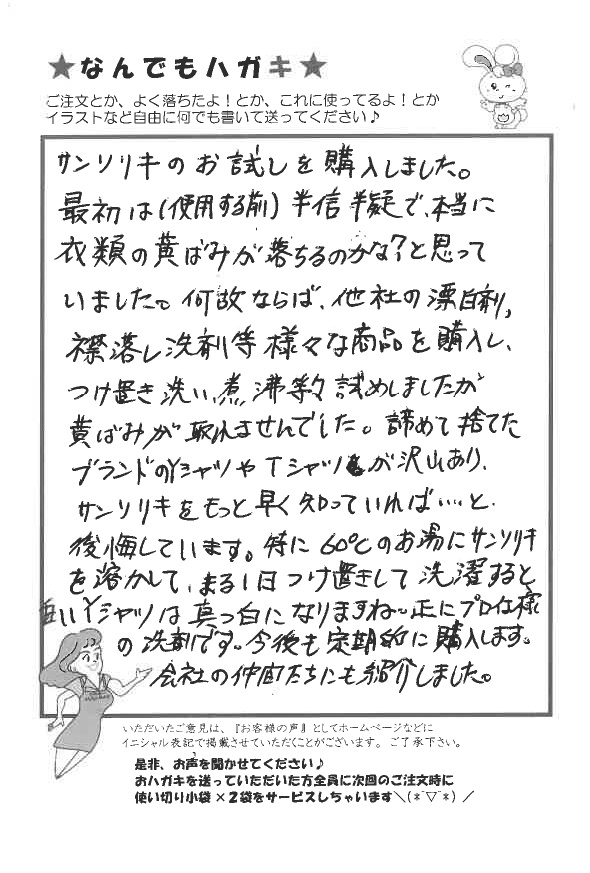 ★なんでもハガキ★
ご注文とか、よく落ちたよ！とか、これに使ってるよ！とか
イラストなど自由に何でも書いて送ってください♪
サンソリキのお試しを購入しました。
最初は(使用する前)半信半疑で、本当に
衣類の黄ばみが落ちるのかな？と思って
いました。何故ならば、他社の漂白剤,
襟落し洗剤等様々な商品を購入し、
つけ置き洗い、煮沸等々試めしましたが
黄ばみが取れませんでした。諦めて捨てた
ブランドのYシャツやTシャツが沢山あり、
サンソリキをもっと早く知っていれば…と
後悔しています。特に60℃のお湯にサンソリキ
を溶かして、まる1日つけ置きして洗濯すると
白いYシャツは真っ白になりますね～正にプロ仕様
の洗剤です。今後も定期的に購入します。
会社の仲間たちにも紹介しました。
いただいたご意見は、『お客様の声』としてホームページなどに
イニシャル表記で掲載させていただくことがございます。ご了承下さい。
是非、お声を聞かせてください♪
おハガキを送っていただいた方全員に次回のご注文時に
使い切り小袋×2袋をサービスしちゃいます＼(*ˇ▽ˇ*)／